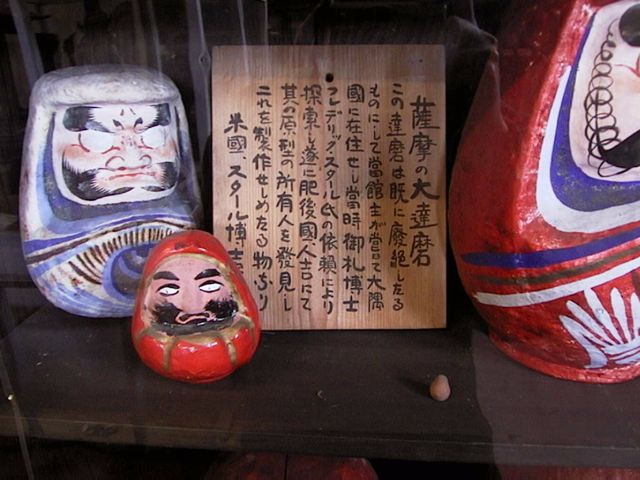 薩摩の大達磨
この達磨は既に廃絶したる
ものにして當館主が嘗て大隅
國に在住せし當時御札博士
フレデリックスタール氏の依頼により
探索し遂に肥後國人吉にて
其の原型の所有人を發見し
これを製作せしめたる物なり
米國、スタール博士